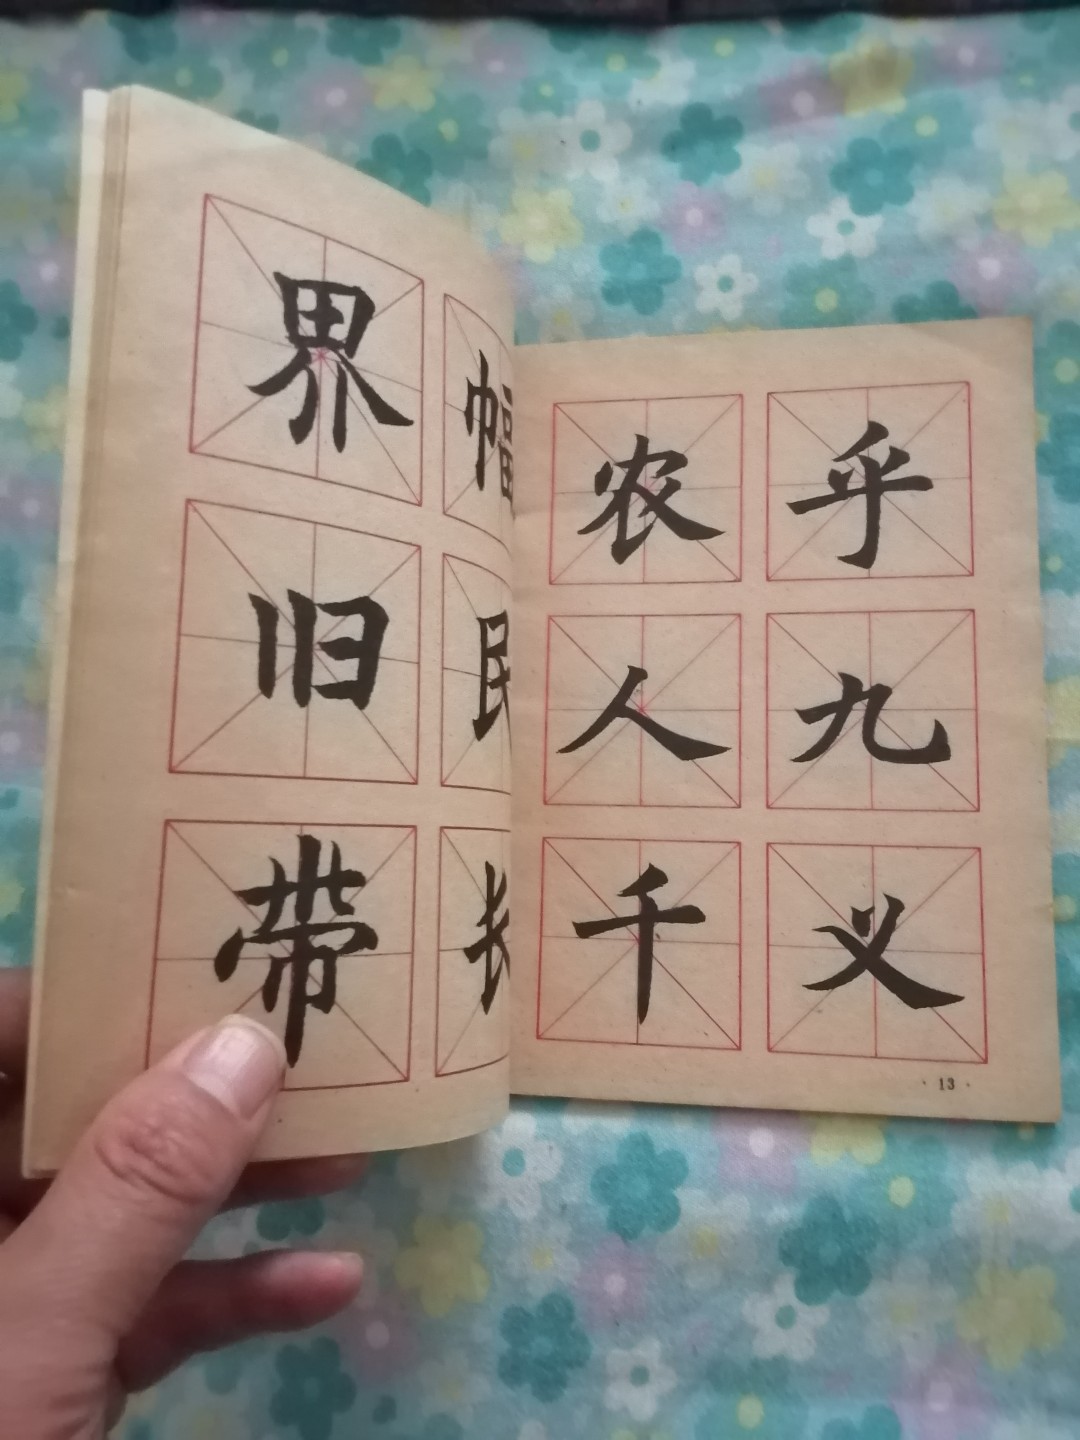 界 幅
旧 民
带 长
农 乎
人 九
千 义
· 13 ·